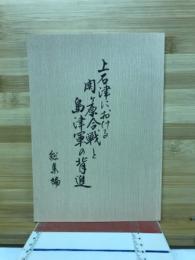 上石津における
関ヶ原合戦と
島津軍の背進
総集編